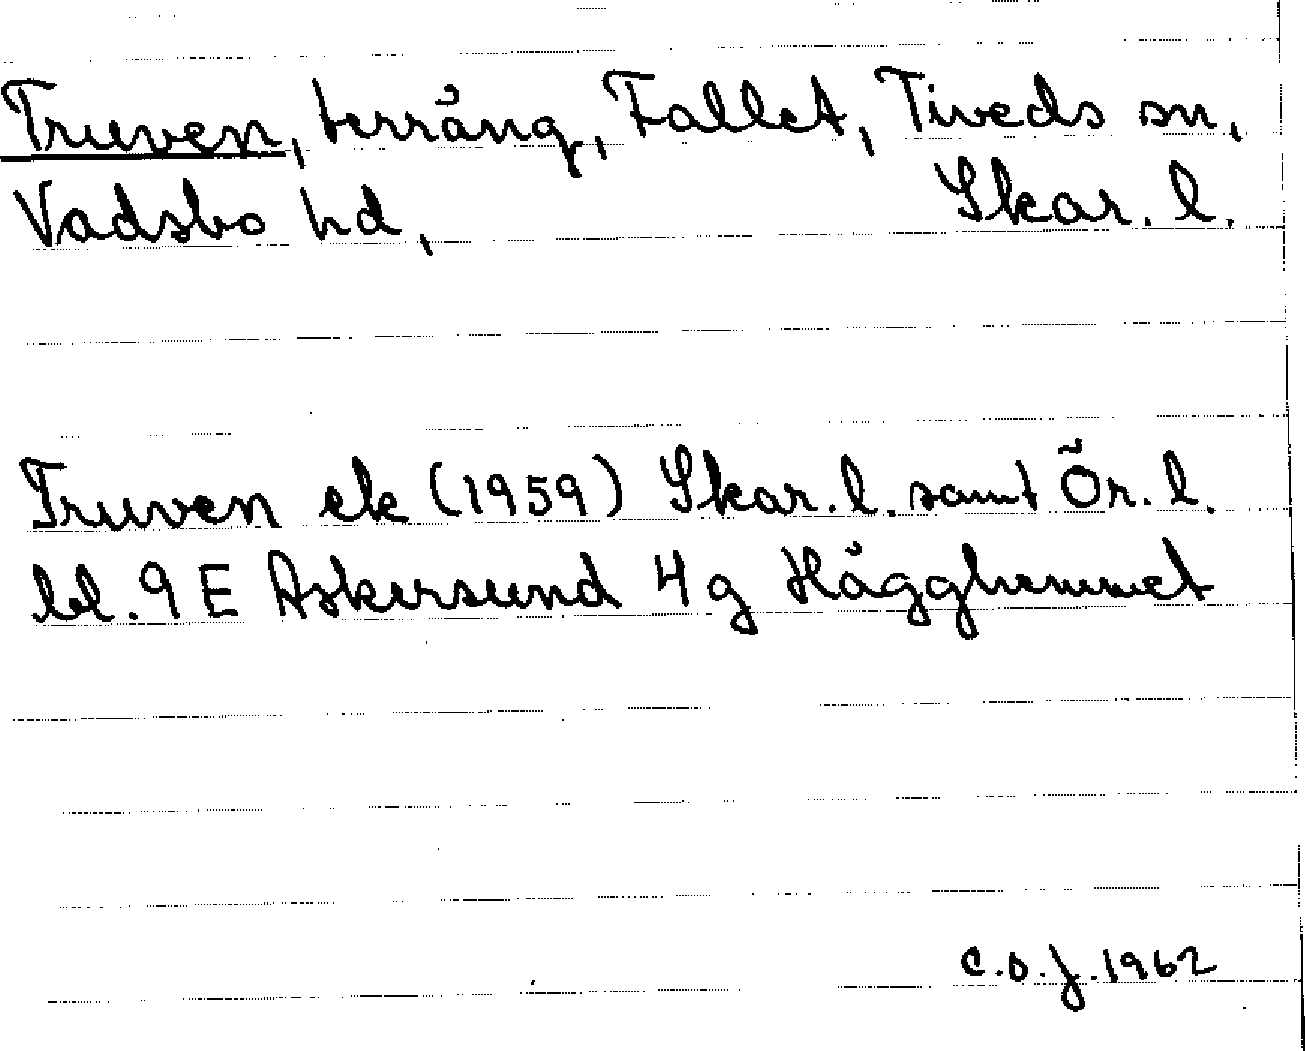 Truven, terräng, Fallet, Tiveds sn,
Vadsbo hd, Skar. l.
Truven ek (1959) Skar. l. samt Ör. l.
bl. 9 E Askersund 4 g Hägghemmet
C.O.J. 1962